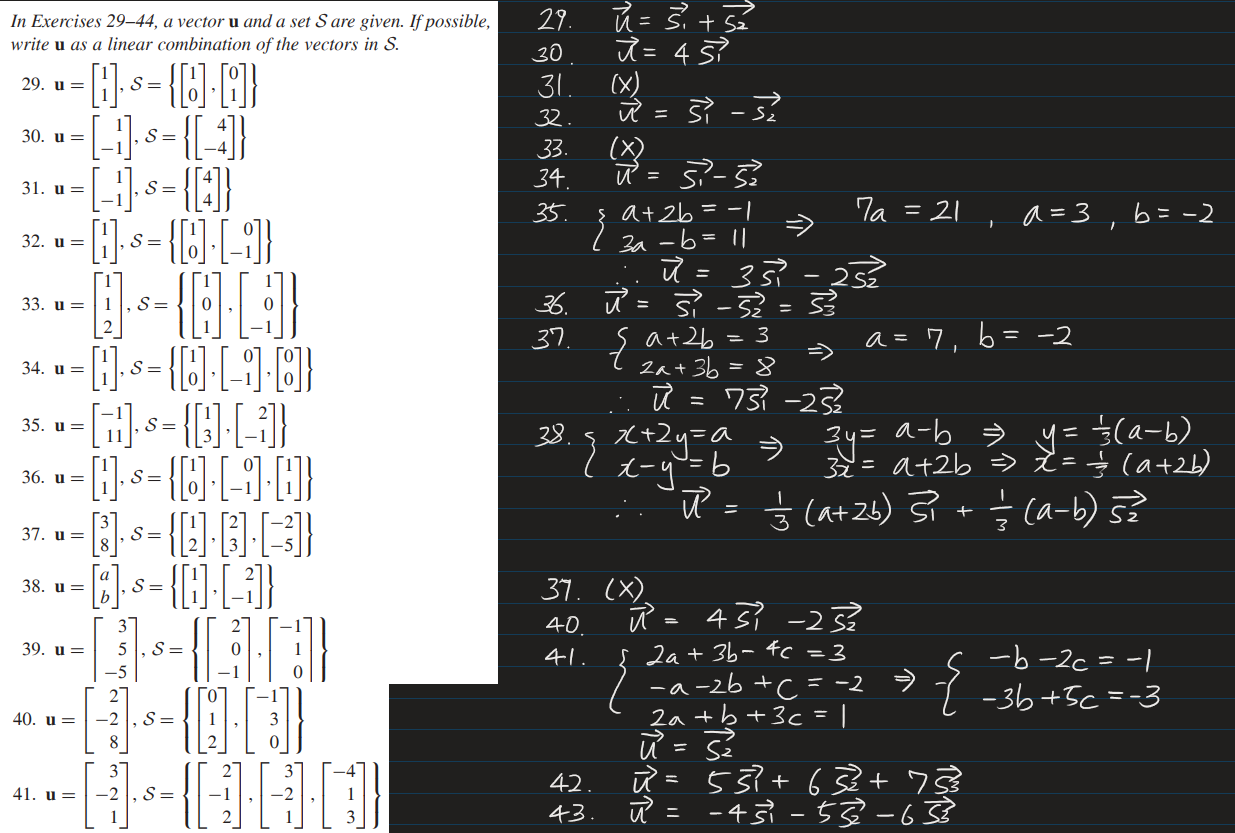 In Exercises 29–44, a vector u and a set S are given. If possible,
write u as a linear combination of the vectors in S.
29. u = [1; 1], S = {[1; 0], [0; 1]}
30. u = [1; −1], S = {[4; −4]}
31. u = [1; −1], S = {[4; 4]}
32. u = [1; 1], S = {[1; 0], [0; −1]}
33. u = [1; 1; 2], S = {[1; 0; 1], [1; 0; −1]}
34. u = [1; 1], S = {[1; 0], [0; −1], [0; 0]}
35. u = [−1; 11], S = {[1; 3], [2; −1]}
36. u = [1; 1], S = {[1; 0], [0; −1], [1; 1]}
37. u = [3; 8], S = {[1; 2], [2; 3], [−2; −5]}
38. u = [a; b], S = {[1; 1], [2; −1]}
39. u = [3; 5; −5], S = {[2; 0; −1], [−1; 1; 0]}
40. u = [2; −2; 8], S = {[0; 1; 2], [−1; 3; 0]}
41. u = [3; −2; 1], S = {[2; −1; 2], [3; −2; 1], [−4; 1; 3]}
29. u⃗ = s₁⃗ + s₂⃗
30. u⃗ = 4 s₁⃗
31. (x)
32. u⃗ = s₁⃗ − s₂⃗
33. (x)
34. u⃗ = s₁⃗ − s₂⃗
35. { a+2b = −1 ⇒ 7a = 21 , a = 3 , b = −2
3a − b = 11
∴ u⃗ = 3s₁⃗ − 2s₂⃗
36. u⃗ = s₁⃗ − s₂⃗ = s₃⃗
37. { a+2b = 3 ⇒ a = 7, b = −2
2a+3b = 8
∴ u⃗ = 7s₁⃗ − 2s₂⃗
38. { x+2y=a ⇒ 3y = a−b ⇒ y = 1/3(a−b)
x−y=b 3x = a+2b ⇒ x = 1/3 (a+2b)
∴ u⃗ = 1/3 (a+2b) s₁⃗ + 1/3 (a−b) s₂⃗
39. (x)
40. u⃗ = 4s₁⃗ − 2s₂⃗
41. { 2a + 3b − 4c = 3 ⇒ { −b −2c = −1
−a −2b + c = −2 −3b +5c = −3
2a + b + 3c = 1
u⃗ = s₂⃗
42. u⃗ = 5s₁⃗ + 6s₂⃗ + 7s₃⃗
43. u⃗ = −4s₁⃗ − 5s₂⃗ − 6s₃⃗